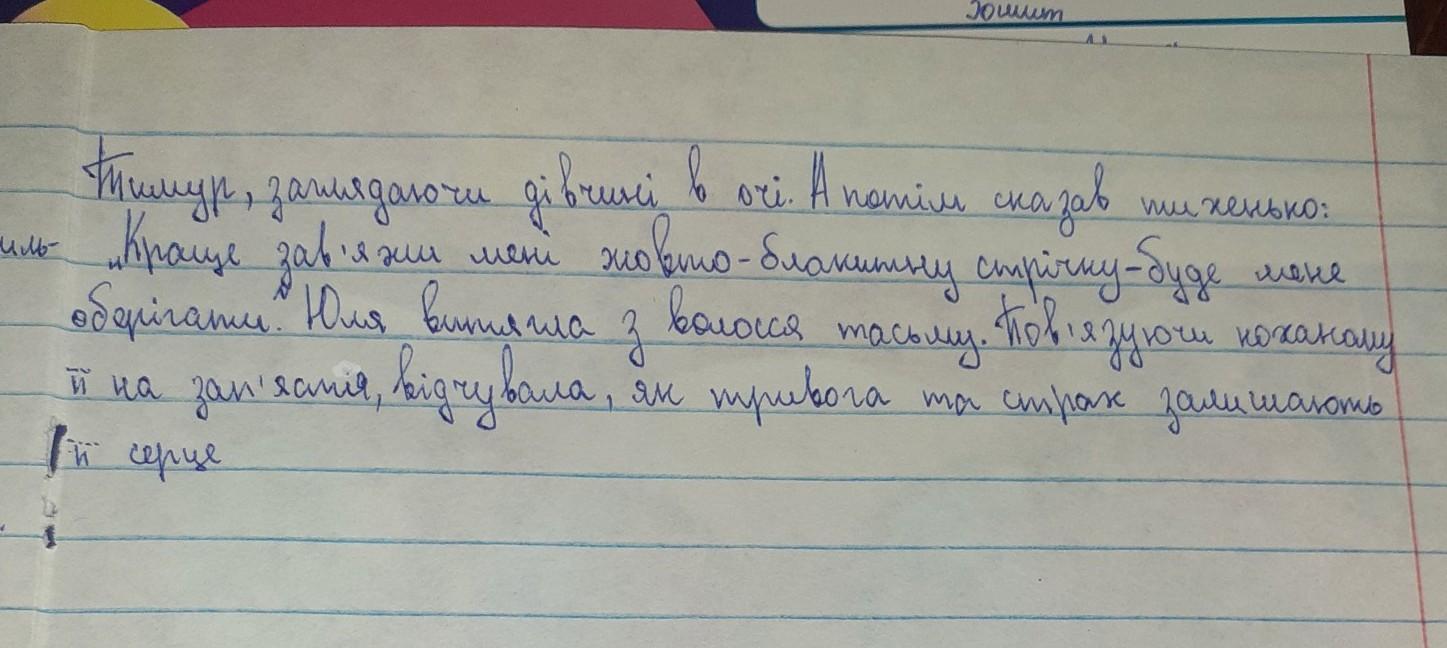 Зошит
Тимур, заглядаючи дівчині в очі. А потім сказав тихенько:
иль- „Краще зав'яжи мені жовто-блакитну стрічку-буде мене
оберігати." Юля витягла з волосся тасьму. Пов'язуючи коханому
її на зап'ястя, відчувала, як тривога та страх залишають
її серце